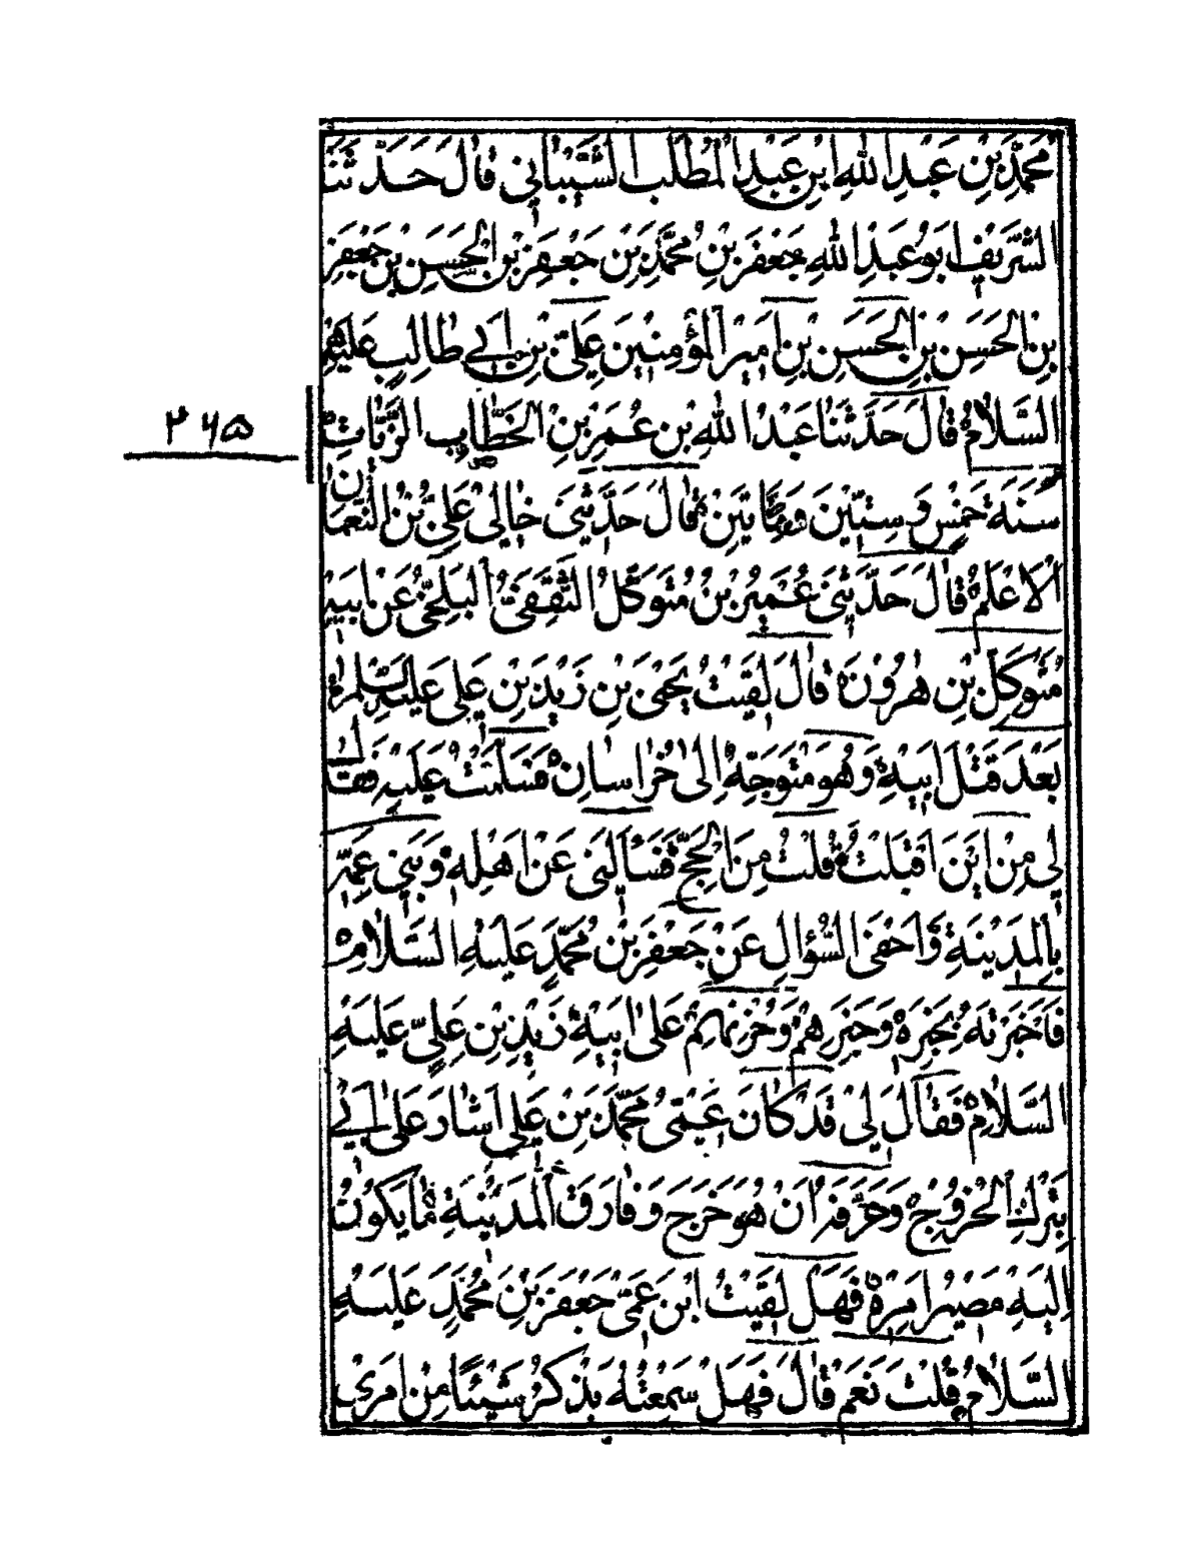 مُحَمَّدِ بْنِ عَبْدِ اللّٰهِ ابْنِ عَبْدِ الْمُطَّلِبِ الشَّيْبَانِي قَالَ حَدَّثَنَا
الشَّرِيفُ اَبُو عَبْدِ اللّٰهِ جَعْفَرِ بْنِ مُحَمَّدِ بْنِ جَعْفَرِ بْنِ الْحَسَنِ بْنِ جَعْفَرِ
بْنِ الْحَسَنِ بْنِ الْحَسَنِ بْنِ اَمِيرِ الْمُؤْمِنِينَ عَلِيِّ بْنِ اَبِي طَالِبٍ عَلَيْهِمُ
السَّلَامُ قَالَ حَدَّثَنَا عَبْدُ اللّٰهِ بْنِ عُمَرِ بْنِ الْخَطَّابِ الزَّيَّاتِ
۲۶۵
سَنَةَ خَمْسٍ وَ سِتِّينَ وَ مِائَتَيْنِ قَالَ حَدَّثَنِي خَالِي عَلِيُّ بْنُ النُّعْمَانِ
الْاَعْلَمُ قَالَ حَدَّثَنِي عُمَيْرُ بْنُ مُتَوَكِّلُ الثَّقَفِيُّ الْبَلْخِيُّ عَنْ اَبِيهِ
مُتَوَكِّلِ بْنِ هٰرُونَ قَالَ لَقِيتُ يَحْيَى بْنِ زَيْدِ بْنِ عَلِي عَلَيْهِ السَّلَامُ
بَعْدَ قَتْلِ اَبِيهِ وَ هُوَ مُتَوَجِّهٌ اِلَى خُرَاسَانَ فَسَلَّمْتُ عَلَيْهِ فَقَالَ
لِي مِنْ اَيْنَ اَقْبَلْتَ قُلْتُ مِنَ الْحَجِّ فَسَأَلَنِي عَنْ اَهْلِهِ وَ بَنِي عَمِّهِ
بِالْمَدِينَةِ وَ اَحْفَى السُّؤَالَ عَنْ جَعْفَرِ بْنِ مُحَمَّدٍ عَلَيْهِ السَّلَامُ
فَاَخْبَرْتُهُ بِخَبَرِهِ وَ خَبَرِهِمْ وَ حُزْنِهِمْ عَلَى اَبِيهِ زَيْدِ بْنِ عَلِيٍّ عَلَيْهِ
السَّلَامُ فَقَالَ لِي قَدْ كَانَ عَمِّي مُحَمَّدُ بْنُ عَلِي اَشَارَ عَلَى اَبِي
بِتَرْكِ الْخُرُوجِ وَ عَرَّفَهُ اِنْ هُوَ خَرَجَ وَ فَارَقَ الْمَدِينَةَ مَا يَكُونُ
اِلَيْهِ مَصِيرُ اَمْرِهِ فَهَلْ لَقِيتَ ابْنَ عَمِّي جَعْفَرَ بْنَ مُحَمَّدٍ عَلَيْهِ
السَّلَامُ قُلْتُ نَعَمْ قَالَ فَهَلْ سَمِعْتَهُ يَذْكُرُ شَيْئًا مِنْ اَمْرِي